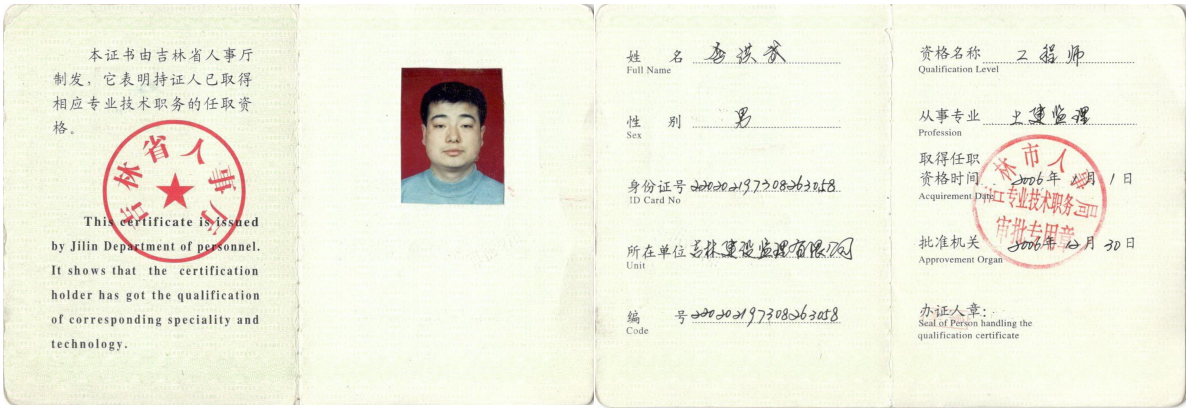 本证书由吉林省人事厅
制发，它表明持证人已取得
相应专业技术职务的任取资
格。
吉林省人事厅
This certificate is issued
by Jilin Department of personnel.
It shows that the certification
holder has got the qualification
of corresponding speciality and
technology.
姓 名
Full Name
性 别 男
Sex
身份证号 220202197308263058
ID Card No
所在单位 吉林建设监理有限公司
Unit
编 号 220202197308263058
Code
资格名称 工程师
Qualification Level
从事专业 土建监理
Profession
取得任职
资格时间 2006年 月1日
Acquirement Date
批准机关 2006年12月30日
Approvement Organ
吉林市人事局
专业技术职务
审批专用章
办证人章：
Seal of Person handling the
qualification certificate